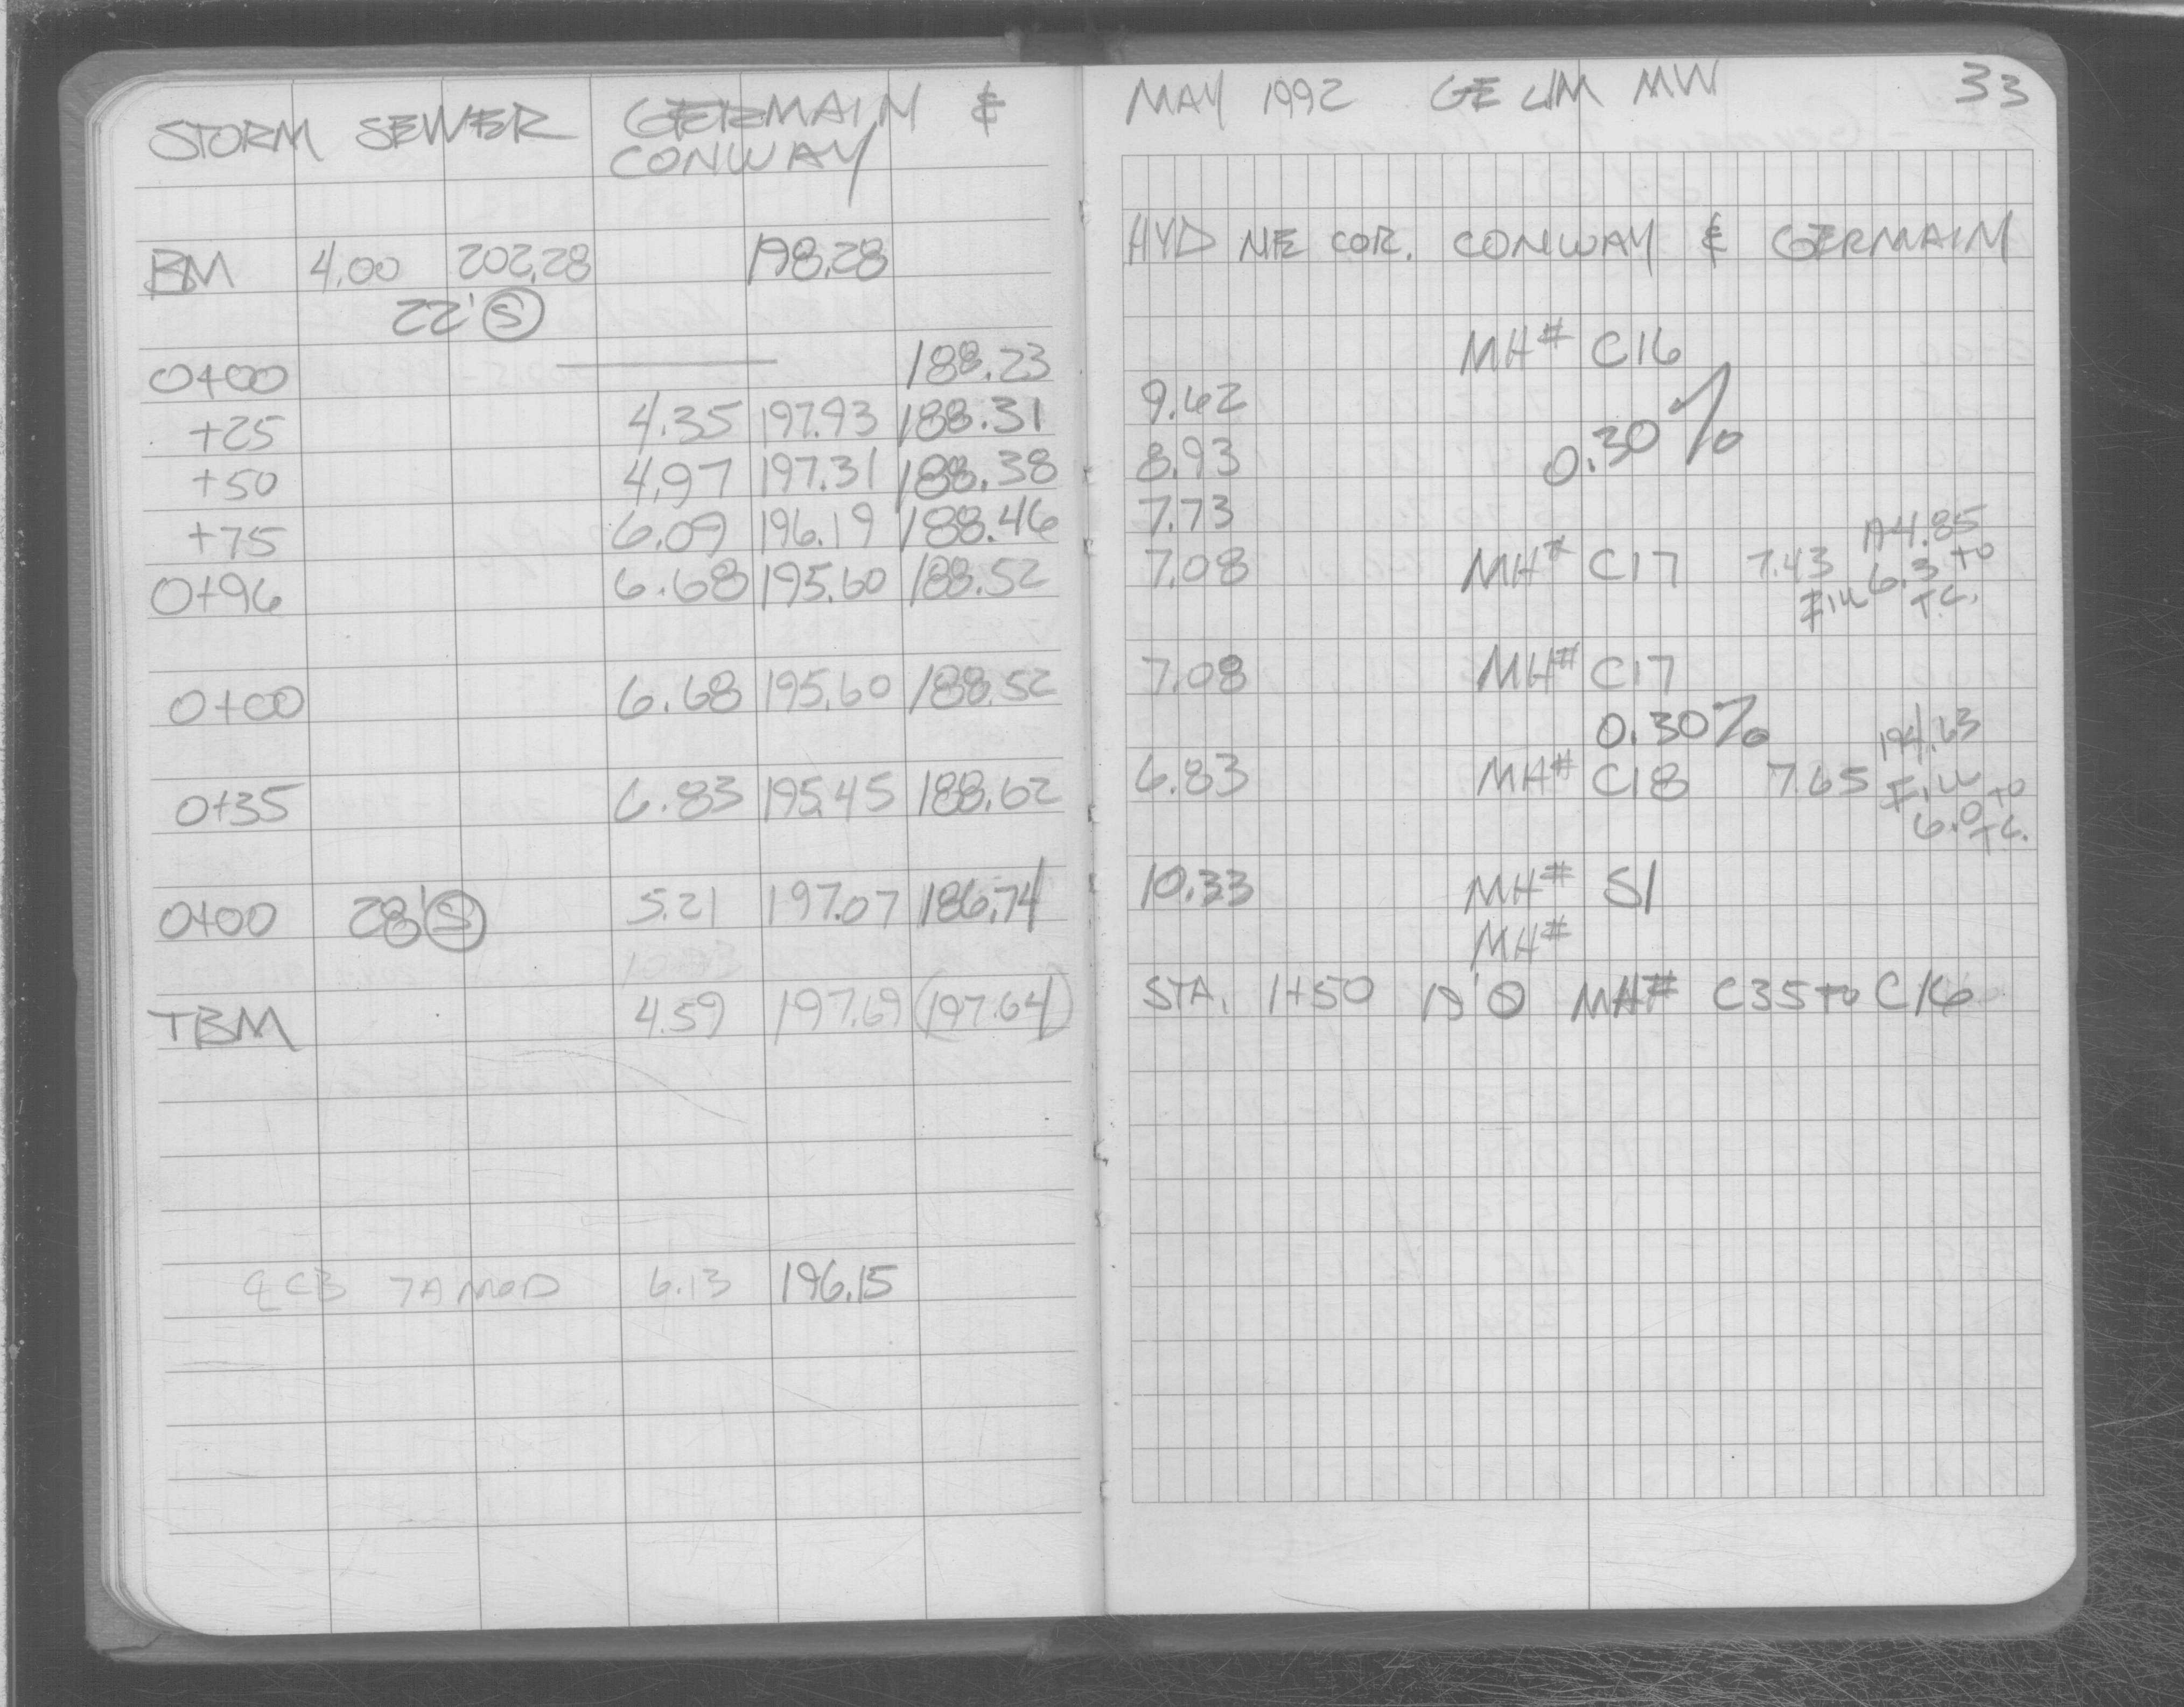 STORM SEWER GERMAIN &
CONWAY
BM 4.00 202.28 198.28
22' Ⓢ
0+00 188.23
+25 4.35 197.93 188.31
+50 4.97 197.31 188.38
+75 6.09 196.19 188.46
0+96 6.68 195.60 188.52
0+00 6.68 195.60 188.52
0+35 6.83 195.45 188.62
0+00 28' Ⓢ 5.21 197.07 186.74
TBM 4.59 197.69 (197.64)
6.13 196.15
MAY 1992 GE JM MW 33
HYD NE COR. CONWAY & GERMAIN
MH# C16
9.62
0.30%
8.93
7.73
7.08 MH# C17 7.43
6.3 TO
T.C.
7.08 MH# C17
0.30%
194.63
6.83 MH# C18 7.65
6.0 TO
T.C.
10.33 MH# S1
MH#
STA. 1+50 MH# C35 TO C16